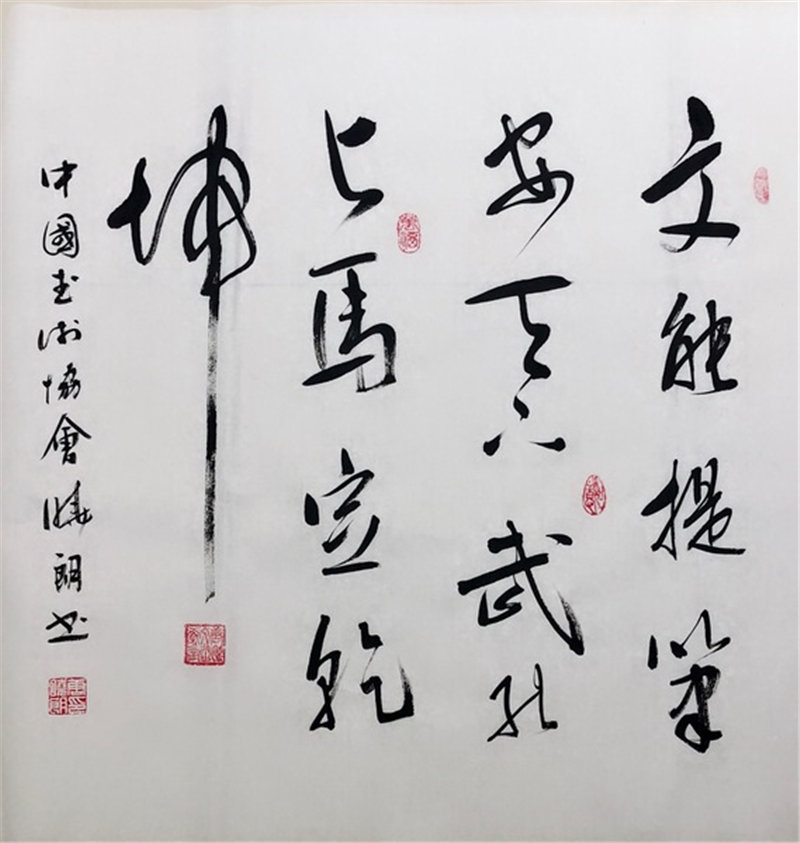 文能提笔
安天下武能
上马定乾
坤
中國书法协會晓朗书